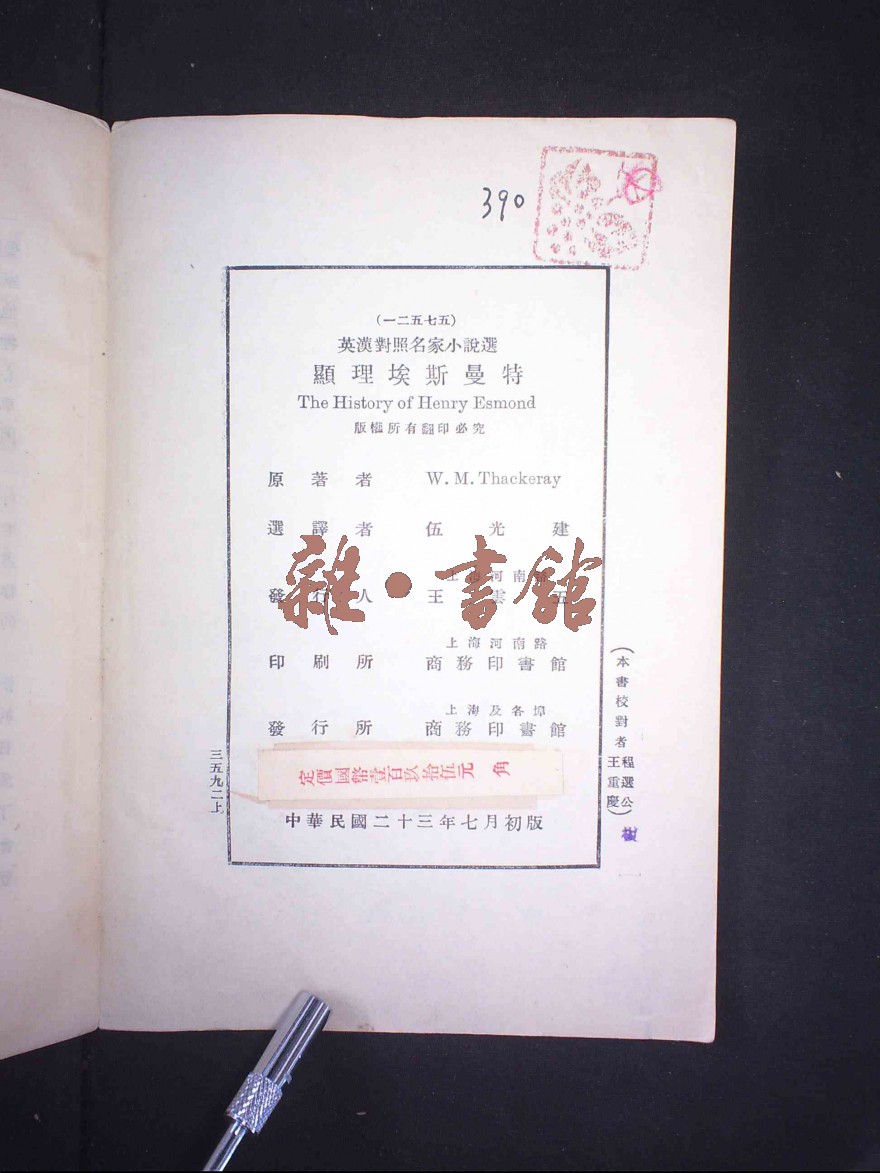 390
（一二五七五）
英漢對照名家小說選
顯理埃斯曼特
The History of Henry Esmond
版權所有翻印必究
原著者 W. M. Thackeray
選譯者 伍光建
上海河南路
發行人 王雲五
雜·書館
上海河南路
印刷所 商務印書館
上海及各埠
發行所 商務印書館
定價國幣壹百玖拾伍元 角
中華民國二十三年七月初版
（本書校對者 程選公 王重慶）
三五九二上